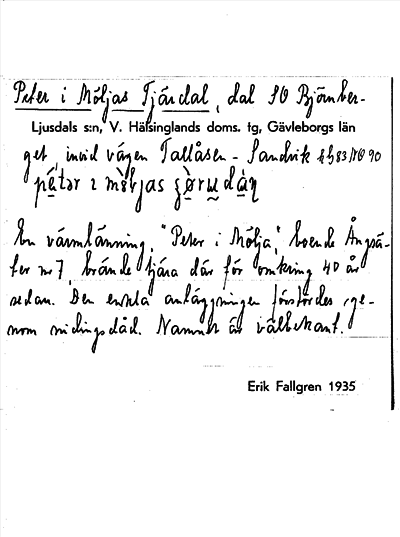 Peter i Möljas Tjärdal, dal SO Björnber-
Ljusdals s:n, V. Hälsinglands doms. tg, Gävleborgs län
get, invid vägen Tallåsen - Sandvik
En värmlänning, "Peter i Mölja", boende Ängsä-
ter nr 7, brände tjära där för omkring 40 år
sedan. Den enkla anläggningen förstördes ge-
nom nidingsdåd. Namnet är välbekant.
Erik Fallgren 1935